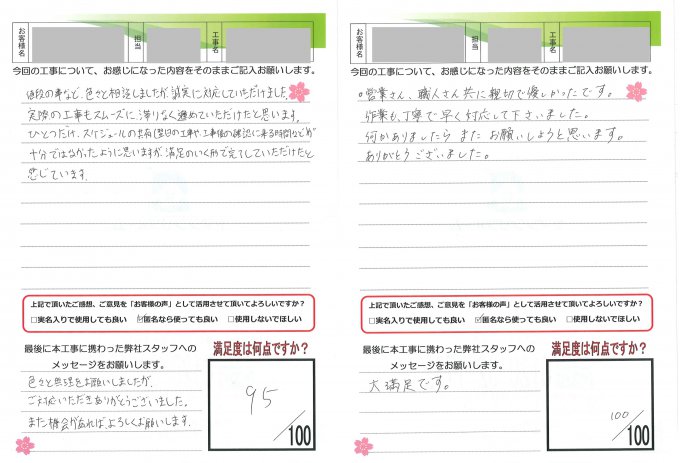 お客様名
担当
工事名
今回の工事について、お感じになった内容をそのままご記入お願いします。
値段の事など、色々と相談しましたが誠実に対応していただけました。
実際の工事もスムーズに、滞りなく進めていただけたと思います。
ひとつだけ、スケジュールの共有(翌日の工事や、工事後の確認に来る時間など)が
十分ではなかったように思いますが、満足のいく形で完了していただけたと
感じています。
上記で頂いたご感想、ご意見を「お客様の声」として活用させて頂いてよろしいですか?
□実名入りで使用しても良い ☑匿名なら使っても良い □使用しないでほしい
最後に本工事に携わった弊社スタッフへの
メッセージをお願いします。
色々と無理をお願いしましたが、
ご対応いただきありがとうございました。
また機会があれば、よろしくお願いします。
満足度は何点ですか?
95
/100
お客様名
担当
工事名
今回の工事について、お感じになった内容をそのままご記入お願いします。
。営業さん、職人さん共に親切で優しかったです。
作業も、丁寧で早く対応して下さいました。
何かありましたら また お願いしようと思います。
ありがとうございました。
上記で頂いたご感想、ご意見を「お客様の声」として活用させて頂いてよろしいですか?
□実名入りで使用しても良い ☑匿名なら使っても良い □使用しないでほしい
最後に本工事に携わった弊社スタッフへの
メッセージをお願いします。
大満足です。
満足度は何点ですか?
100
/100